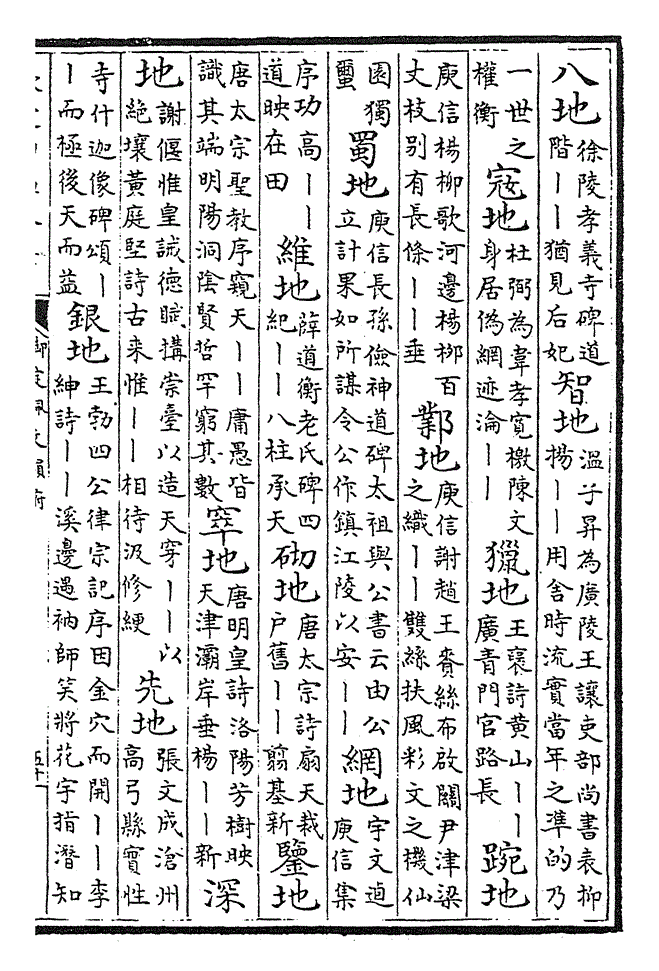 八地徐陵孝義寺碑道階丨丨猶見后妃智地溫子昇為廣陵王讓吏部尚書表抑揚丨丨用舍時流實當年之準的乃
一世之權衡寇地杜弼為韋孝寛檄陳文身居偽網迹淪丨丨獵地王褒詩黄山丨丨廣青門官路長踠地
庾信楊柳歌河邊楊柳百丈枝别有長條丨丨垂鄴地庾信謝趙王賚絲布啟闗尹津梁之織丨丨雙絲扶風彩文之機仙
園獨蠒蜀地庾信長孫儉神道碑太祖與公書云由公立計果如所謀令公作鎮江陵以安丨丨網地宇文逌庾信集
序功高丨丨道映在田維地薛道衡老氏碑四紀丨丨八柱承天砌地唐太宗詩扇天裁户舊丨丨翦基新鑒地
唐太宗聖教序窺天丨丨庸愚皆識其端明陽洞陰賢哲罕窮其數窣地唐明皇詩洛陽芳樹映天津灞岸垂楊丨丨新深
地謝偃惟皇誡德賦搆崇臺以造天穿丨丨以絶壤黄庭堅詩古来惟丨丨相待汲修綆先地張文成滄州高弓縣實性
寺什迦像碑頌丨丨而極後天而益銀地王勃四公律宗記序因金穴而開丨丨李紳詩丨丨溪邊遇衲師笑將花宇指潛知